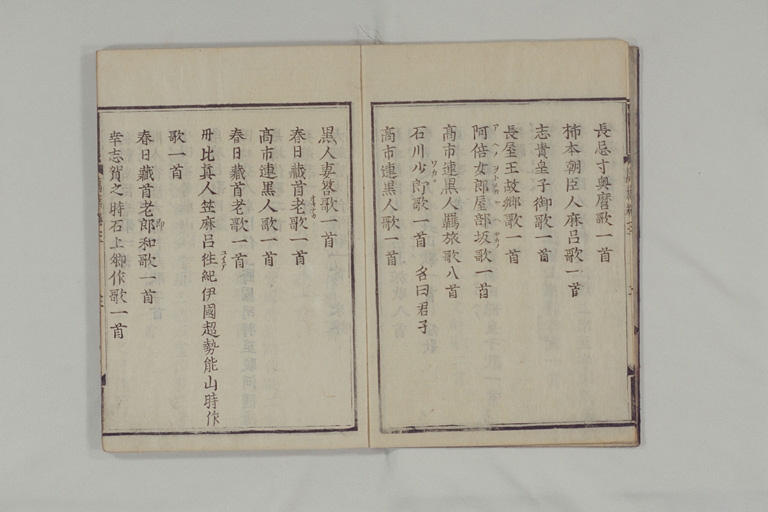 長忌寸奥麿歌一首
柿本朝臣人麻呂歌一首
志貴皇子御歌一首
長屋王故郷歌一首
阿倍女郎屋部坂歌一首
高市連黒人羈旅歌八首
石川少郎歌一首 名曰君子
高市連黒人歌一首
黒人妻答歌一首
春日藏首老歌一首
高市連黒人歌一首
春日藏首老歌一首
丹比真人笠麻呂往紀伊國超勢能山時作
歌一首
春日藏首老郎和歌一首
幸志賀之時石上卿作歌一首